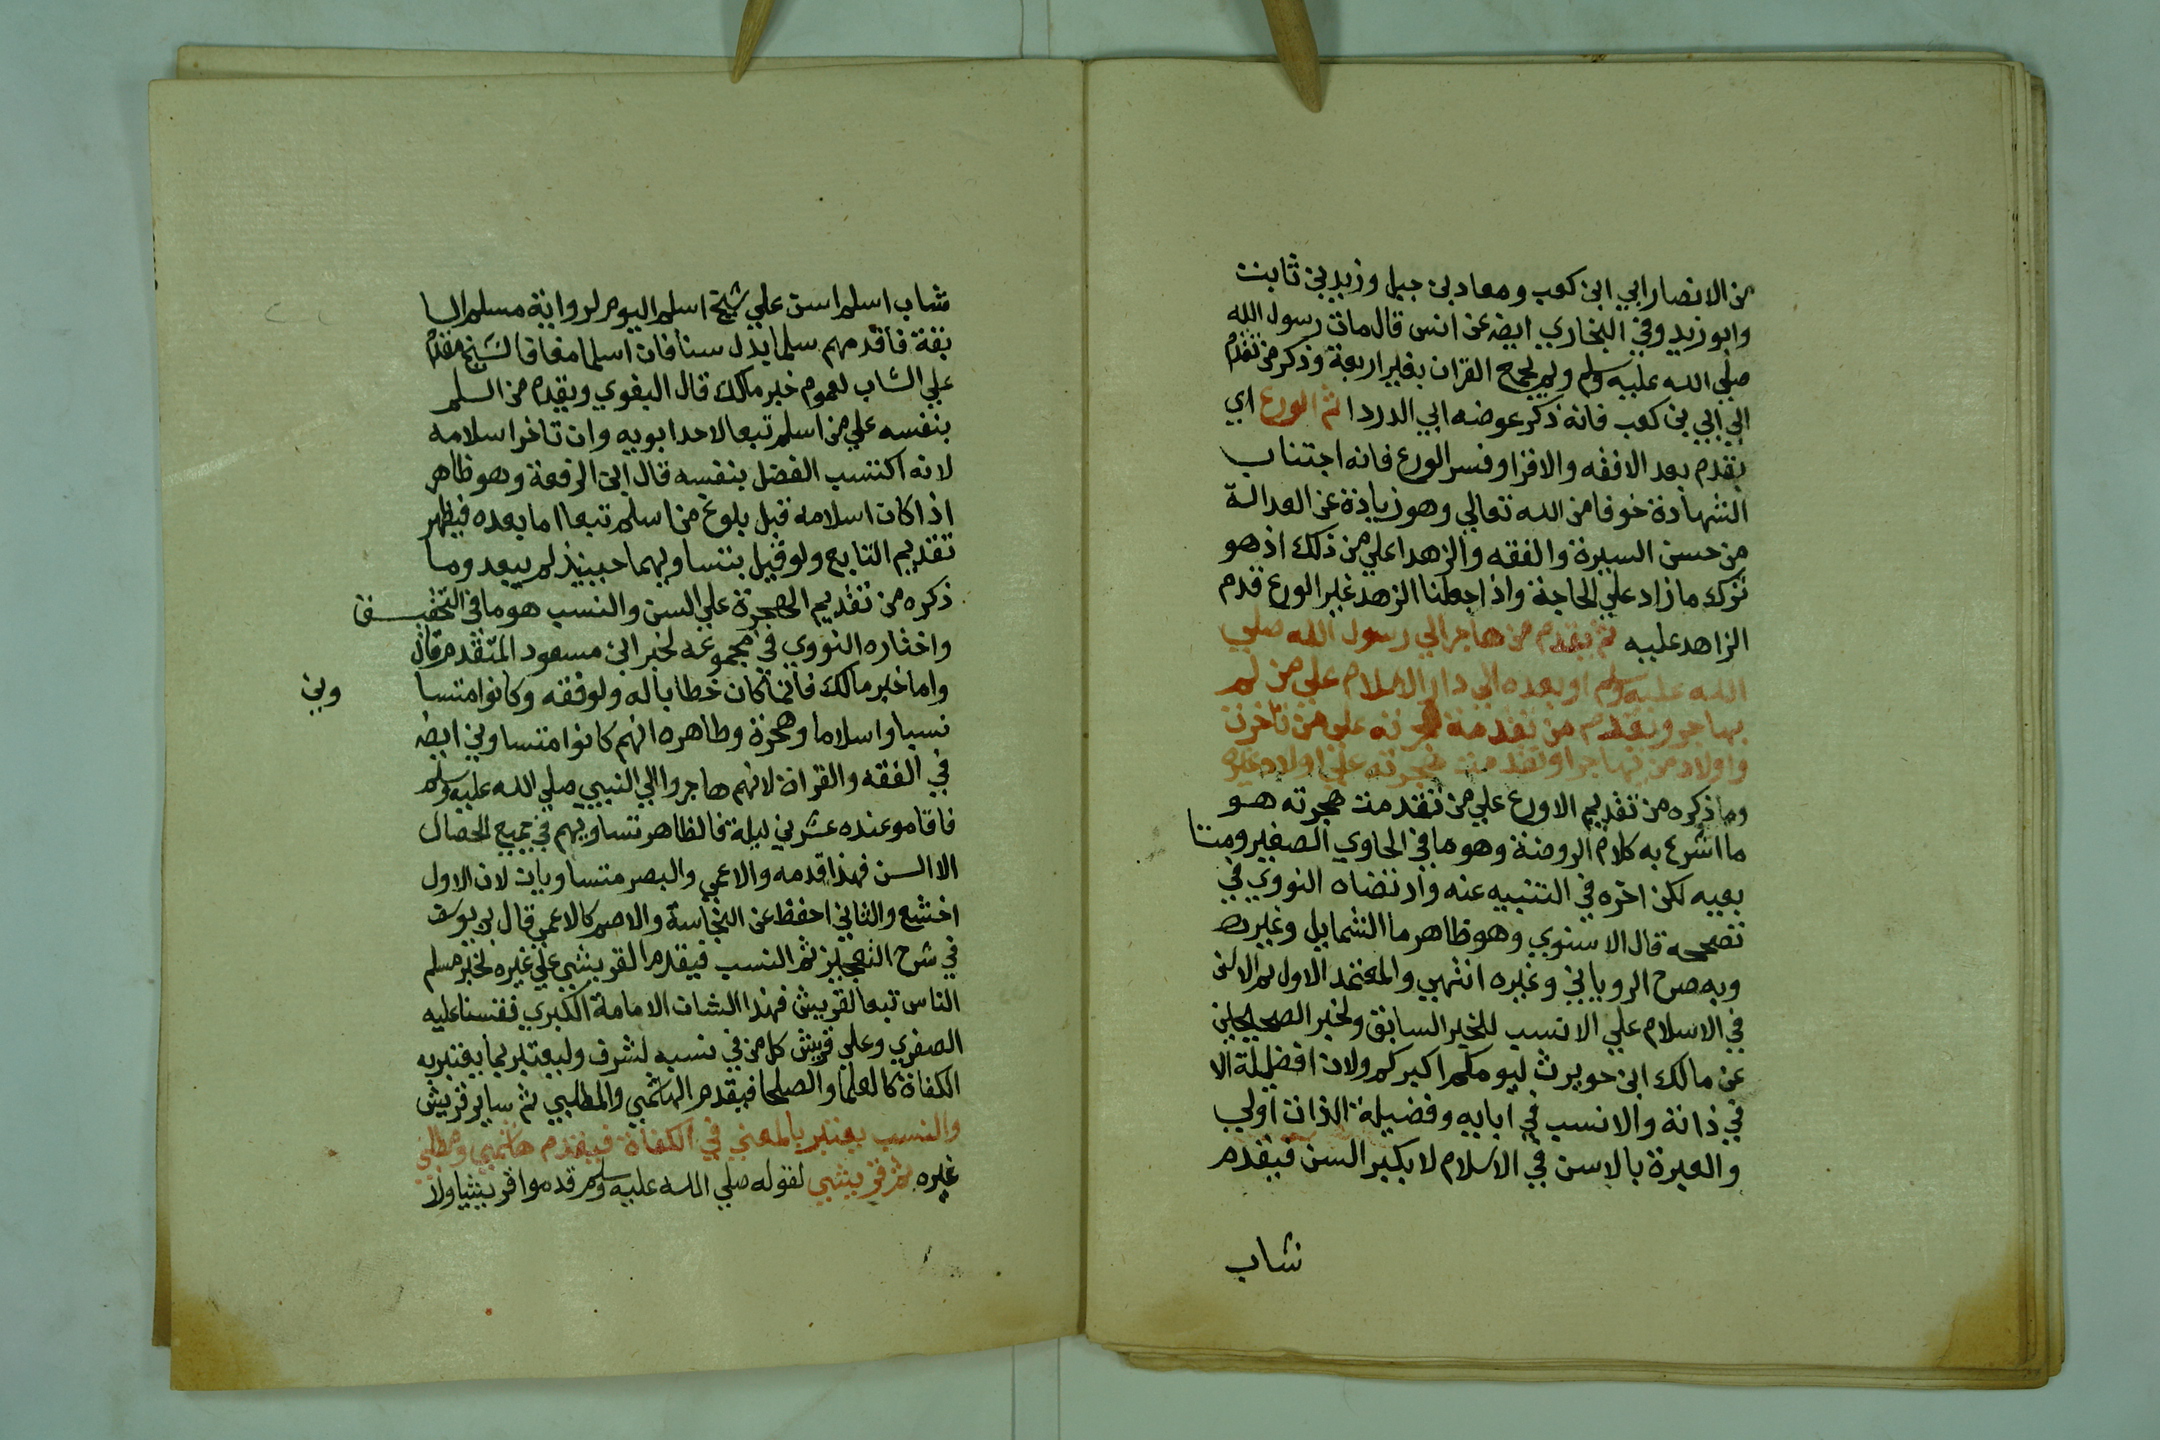 من الانصار ابي ابن كعب ومعاد بن جبل وزيد بن ثابت
وابو زيد وفي البخاري ايضه عن انس قال مات رسول الله
صلي الله عليه وسلم ولم يجمع القران بغير اربعة وذكر من تقدم
الي ابي بن كعب فانه ذكر عوضه ابي الدردا ثم الورع اي
يقدم بعد الافقه والاقرا وفسر الورع فانه اجتناب
الشهادة خوفا من الله تعالي وهو زيادة عن العدالة
من حسن السيرة والفقه والزهد اعلي من ذلك اذ هو
ترك ما زاد علي الحاجة واذا جعلنا الزهد غير الورع قدم
الزاهد عليه ثم يقدم من هاجر الي رسول الله صلي
الله عليه وسلم او بعده الي دار الاسلام علي من لم
يهاجر ويقدم من تقدمة هجرته علي من تاخرت
واولاد من تهاجر او تقدمت هجرته علي اولاد غيره
وما ذكره من تقديم الاورع علي من تقدمت هجرته هو
ما اشرع به كلام الروضة وهو ما في الحاوي الصغير ومتا
بعيه لكن اخره في التنبيه عنه وارتضاه النووي في
تصحيحه قال الاسنوي وهو ظاهر ما الشمايل وغيرها
وبه صرح الروياني وغيره انتهي والمعتمد الاول ثم الاسن
في الاسلام علي الانسب للخبر السابق ولخبر الصحيحين
عن مالك ابن حويرث ليومكم اكبركم ولان افضيلة الا
في ذاته والانسب في ابايه وفضيلة الذات اولي
والعبرة بالاسن في الاسلام لا بكبر السن فيقدم
شاب
شاب اسلم اسن علي شيخ اسلم اليوم لرواية مسلم السا
بقة فاقدمهم سلما يدل سنا فان اسلما معا فالشيخ مقدم
علي الشاب لعموم خبر مالك قال البغوي ويقدم من السلم
بنفسه علي من اسلم تبعا لاحد ابويه وان تاخر اسلامه
لانه اكتسب الفضل بنفسه قال ابن الرفعة وهو ظاهر
اذا كان اسلامه قبل بلوغ من اسلم تبعا اما بعده فيظهر
تقديم التابع ولو قيل بتساويهما حينيذ لم يبعد وما
ذكره من تقديم الهجرة علي السن والنسب هو ما في التحقيق
واختاره النووي في مجموعه لخبر ابن مسعود المتقدم قال
واما خبر مالك فانما كان خطابا له ولوفقه وكانوا متسا
وين
نسبا واسلاما وهجرة وظاهره انهم كانوا متساوين ايضه
في الفقه والقراة لانهم هاجروا الي النبي صلي الله عليه وسلم
فاقامو عنده عشرين ليلة فالظاهر تساويهم في جميع الخصال
الا السن فهذا قدمه والاعمي والبصر متساويان لان الاول
اخشع والثاني احفظ عن النجاسة والاصم كالاعمي قال بن يوسف
في شرح التعجيز ثم النسب فيقدم القريشي علي غيره لخبر مسلم
الناس تبعا لقريش فهذا الشان الامامة الكبري فقسنا عليه
الصغري وعلي قريش كل من في نسبه لشرف وليعتبر بما يعتبر به
الكفاة كالعلما والصلحا فيقدم الهاشمي والمطلبي ثم ساير قريش
والنسب يعتبر بالمعني في الكفاة فيقدم هاشمي ومطلبي
غيره ثم قريشي لقوله صلي الله عليه وسلم قدموا قريشا ولا